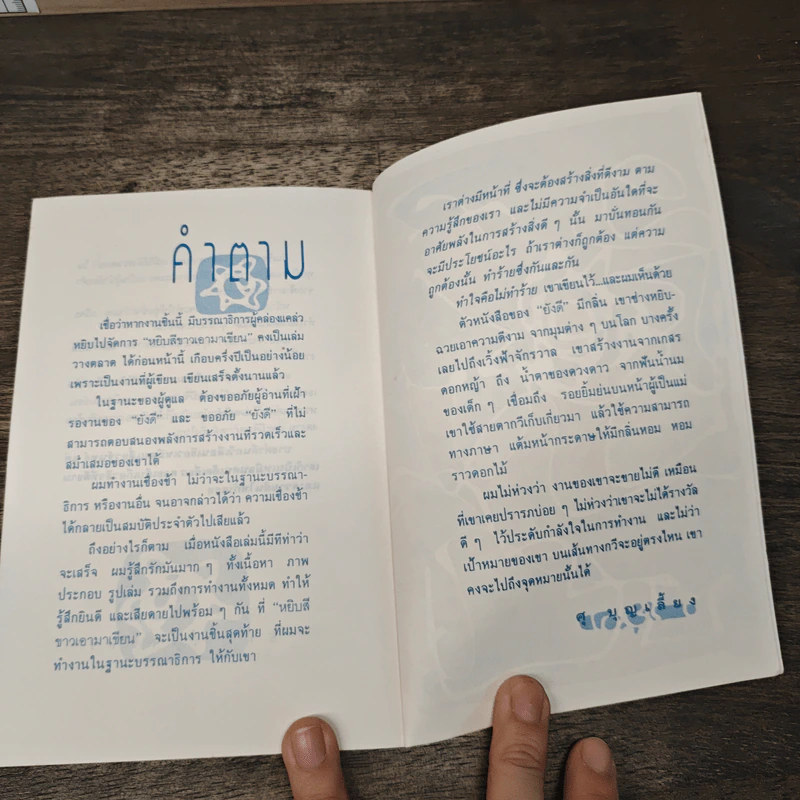 คำตาม
เชื่อว่าหากงานชิ้นนี้ มีบรรณาธิการผู้คล่องแคล่ว
หยิบไปจัดการ "หยิบสีขาวเอามาเขียน" คงเป็นเล่ม
วางตลาด ได้ก่อนหน้านี้ เกือบครึ่งปีเป็นอย่างน้อย
เพราะเป็นงานที่ผู้เขียน เขียนเสร็จตั้งนานแล้ว
ในฐานะของผู้ดูแล ต้องขออภัยผู้อ่านที่เฝ้า
รองานของ "ยังดี" และ ขออภัย "ยังดี" ที่ไม่
สามารถตอบสนองพลังการสร้างงานที่รวดเร็วและ
สม่ำเสมอของเขาได้
ผมทำงานเชื่องช้า ไม่ว่าจะในฐานะบรรณา-
ธิการ หรืองานอื่น จนอาจกล่าวได้ว่า ความเชื่องช้า
ได้กลายเป็นสมบัติประจำตัวไปเสียแล้ว
ถึงอย่างไรก็ตาม เมื่อหนังสือเล่มนี้มีทีท่าว่า
จะเสร็จ ผมรู้สึกรักมันมาก ๆ ทั้งเนื้อหา ภาพ
ประกอบ รูปเล่ม รวมถึงการทำงานทั้งหมด ทำให้
รู้สึกยินดี และเสียดายไปพร้อม ๆ กัน ที่ "หยิบสี
ขาวเอามาเขียน" จะเป็นงานชิ้นสุดท้าย ที่ผมจะ
ทำงานในฐานะบรรณาธิการ ให้กับเขา
เราต่างมีหน้าที่ ซึ่งจะต้องสร้างสิ่งที่ดีงาม ตาม
ความรู้สึกของเรา และไม่มีความจำเป็นอันใดที่จะ
อาศัยพลังในการสร้างสิ่งดี ๆ นั้น มาบั่นทอนกัน
จะมีประโยชน์อะไร ถ้าเราต่างก็ถูกต้อง แต่ความ
ถูกต้องนั้น ทำร้ายซึ่งกันและกัน
ทำใจคือไม่ทำร้าย เขาเขียนไว้...และผมเห็นด้วย
ตัวหนังสือของ "ยังดี" มีกลิ่น เขาช่างหยิบ-
ฉวยเอาความดีงาม จากมุมต่าง ๆ บนโลก บางครั้ง
เลยไปถึงเวิ้งฟ้าจักรวาล เขาสร้างงานจากเกสร
ดอกหญ้า ถึง น้ำตาของดวงดาว จากฟันน้ำนม
ของเด็ก ๆ เชื่อมถึง รอยยิ้มย่นบนหน้าผู้เป็นแม่
เขาใช้สายตากวีเก็บเกี่ยวมา แล้วใช้ความสามารถ
ทางภาษา แต้มหน้ากระดาษให้มีกลิ่นหอม หอม
ราวดอกไม้
ผมไม่ห่วงว่า งานของเขาจะขายไม่ดี เหมือน
ที่เขาเคยปรารภบ่อย ๆ ไม่ห่วงว่าเขาจะไม่ได้รางวัล
ดี ๆ ไว้ประดับกำลังใจในการทำงาน และไม่ว่า
เป้าหมายของเขา บนเส้นทางกวีจะอยู่ตรงไหน เขา
คงจะไปถึงจุดหมายนั้นได้
ศุ บุญเลี้ยง